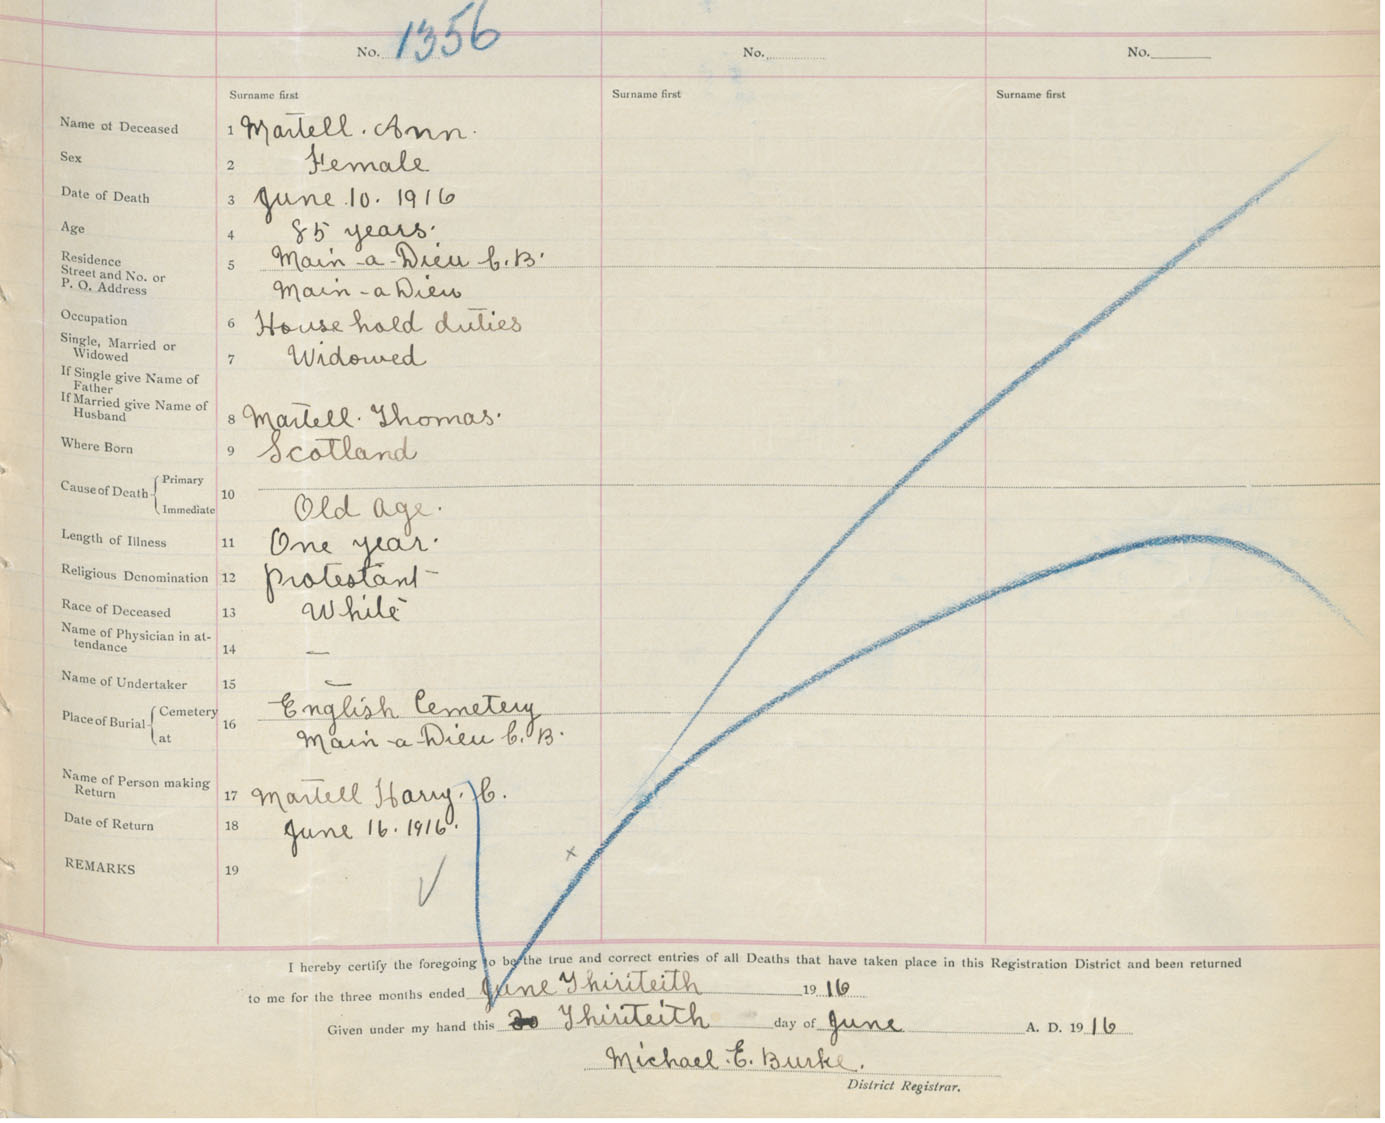 No. 1356 No. No.
Surname first Surname first Surname first
Name of Deceased 1 Martell. Ann.
Sex 2 Female
Date of Death 3 June 10. 1916
Age 4 85 years.
Residence
Street and No. or
P. O. Address
5 Main-a-Dieu C.B.
Main-a Dieu
Occupation 6 House hold duties
Single, Married or
Widowed
7 Widowed
If Single give Name of
Father
If Married give Name of
Husband
8 Martell. Thomas.
Where Born 9 Scotland
Cause of Death Primary
Immediate
10 Old Age.
Length of Illness 11 One year.
Religious Denomination 12 Protestant
Race of Deceased 13 White
Name of Physician in at-
tendance
14 —
Name of Undertaker 15 —
Place of Burial Cemetery
at
16 English Cemetery
Main-a-Dieu C.B.
Name of Person making
Return
17 Martell Harry. C.
Date of Return 18 June 16. 1916.
REMARKS 19
x
I hereby certify the foregoing to be the true and correct entries of all Deaths that have taken place in this Registration District and been returned
to me for the three months ended June Thirteith 19 16
Given under my hand this Thirteith day of June A. D. 19 16
Michael. E. Burke.
District Registrar.